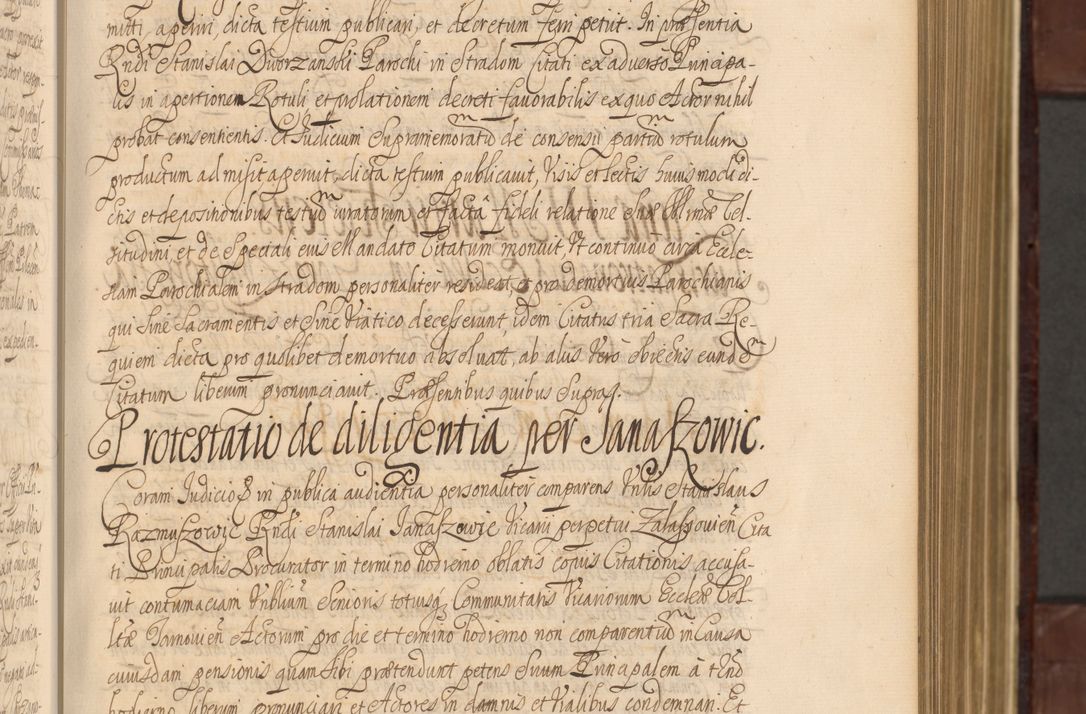 mitti, aperiri, dicta testium publicari, et decretum ferri petiit. In præsentia
Rndi Stanislai Dworzanski Parochi in Stradom Citati ex adverso Principa-
lis in apertionem Rotuli et prolationem decreti favorabilis ex quo Actor nihil
probat consentientis. Et Judicium Supramemoratū de consensū partiū rotulum
productum admisit aperuit, dicta testium publicavit, Visis et lectis huiusmodi di-
ctis et depositionibus testiū iuratorum, et facta fideli relatione Suæ Illrmæ Cel-
situdini, et de Speciali eius Mandato Citatum monuit Ut continuo circa Eccle-
siam Parochialem in Stradom personaliter resideat, et pro demortuis Parochianis
qui Sine Sacramentis et Sine Viatico decesserunt, idem Citatus tria Sacra Re-
quiem dicta pro quolibet demortuo absolvat, ab aliis Vero obiectis eundē
Citatum liberum pronunciavit. Præsentibus quibus Supra.
Protestatio de diligentia per Janaszowic.
Coram Judicio in publica audientia personaliter comparens Nblis Stanislaus
Razmuszowic Rndi Stanislai Janaszowic Vicarii perpetui Zalassovien Cita
ti Principalis Procurator in termino hodierno oblatis copiis Citationis accusa-
vit contumaciam Nblium Senioris totiusq Communitatis Vicariorum Ecclæ Col-
ltæ Tarnovien Actorum pro die et termino hodierno non comparentiū in Causa
cuiusdam pensionis quam Sibi prætendunt petens Suum Principalem a tno
hodierno liberum pronunciari et Actores in damnis et Vialibus condemnari. Et